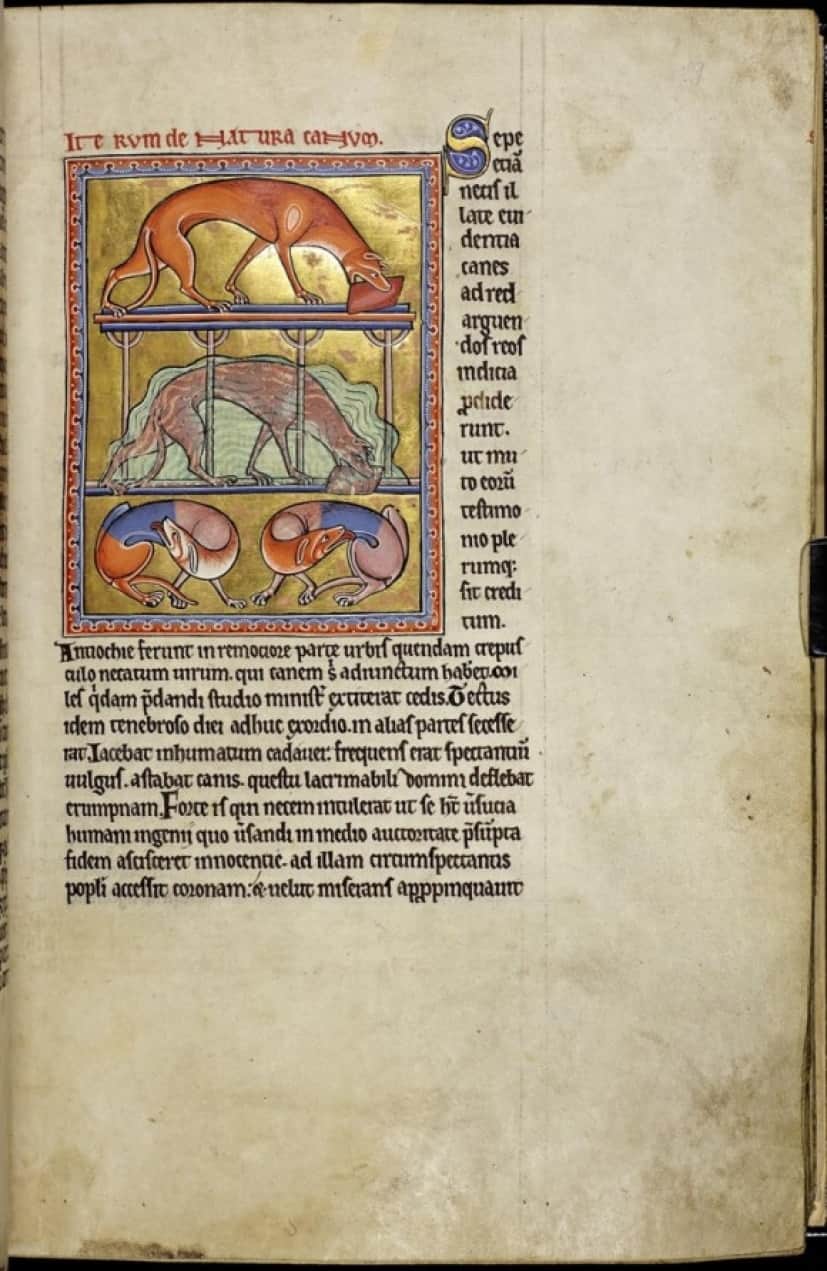 Ite rum de natura canum.
Sepe
eciā
necis il
late eui
dentia
canes
ad red
arguen
dos reos
indicia
ꝓdide
runt.
ut mu
to eorū
testimo
nio ple
rumq;
sit credi
tum.
Antiochie ferunt in remociore parte urbis quendam crepus
culo necatum uirum. qui canem s̄ adiunctum haberet. Mi
les q̇dam p̄dandi studio minist̄ extiterat cedis. Tectus
idem tenebroso diei adhuc exordio. in alias partes secesse
rat. Iacebat inhumatum cadauer. frequens erat spectantiū
uulgus. astabat canis. questu lacrimabili domini deflebat
erumpnam. Forte is qui necem intulerat ut se ħt ūsucia
humani ingenii quo ūsandi in medio auctoritate p̄sūpta
fidem ascisceret innocentie. ad illam circumspectantis
popl̄i accessit coronam. & uelut miserans aꝓꝓpinquauit